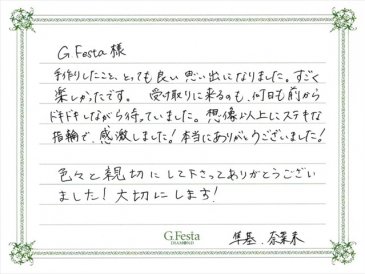 G.Festa様
手作りしたこと、とっても良い思い出になりました。すごく
楽しかったです。 受け取りに来るのも、何日も前から
ドキドキしながら待っていました。想像以上にステキな
指輪で、感激しました!本当にありがとうございました!
色々と親切にして下さってありがとうござい
ました!大切にします!
G.Festa
DIAMOND
隼基、奈菜未